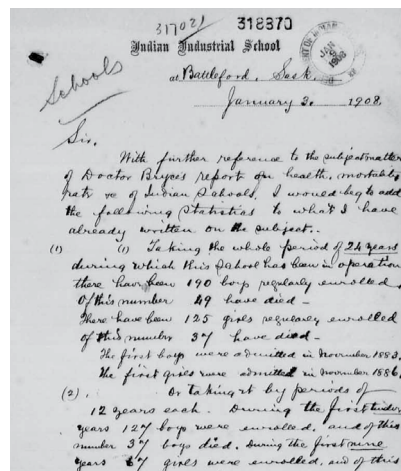 317021 318370
Indian Industrial School
at Battleford, Sask.
JAN 8 1908
Schools
January 2. 1908
Sir,
With further reference to the subject matter
of Doctor Bryce's report on health, mortality
rate &c of Indian Schools. I would beg to add
the following statistics to what I have
already written on the subject.
(1) (1) Taking the whole period of 24 years
during which this School has been in operation
there have been 190 boys regularly enrolled.
Of this number 49 have died -
There have been 125 girls regularly enrolled
of this number 37 have died -
The first boys were admitted in November 1883.
The first girls were admitted in November 1886.
(2). Or taking it by periods of
12 years each. During the first
years 127 boys were enrolled, and of this
number 37 boys died. During the first nine
years 67 girls were enrolled, and of this